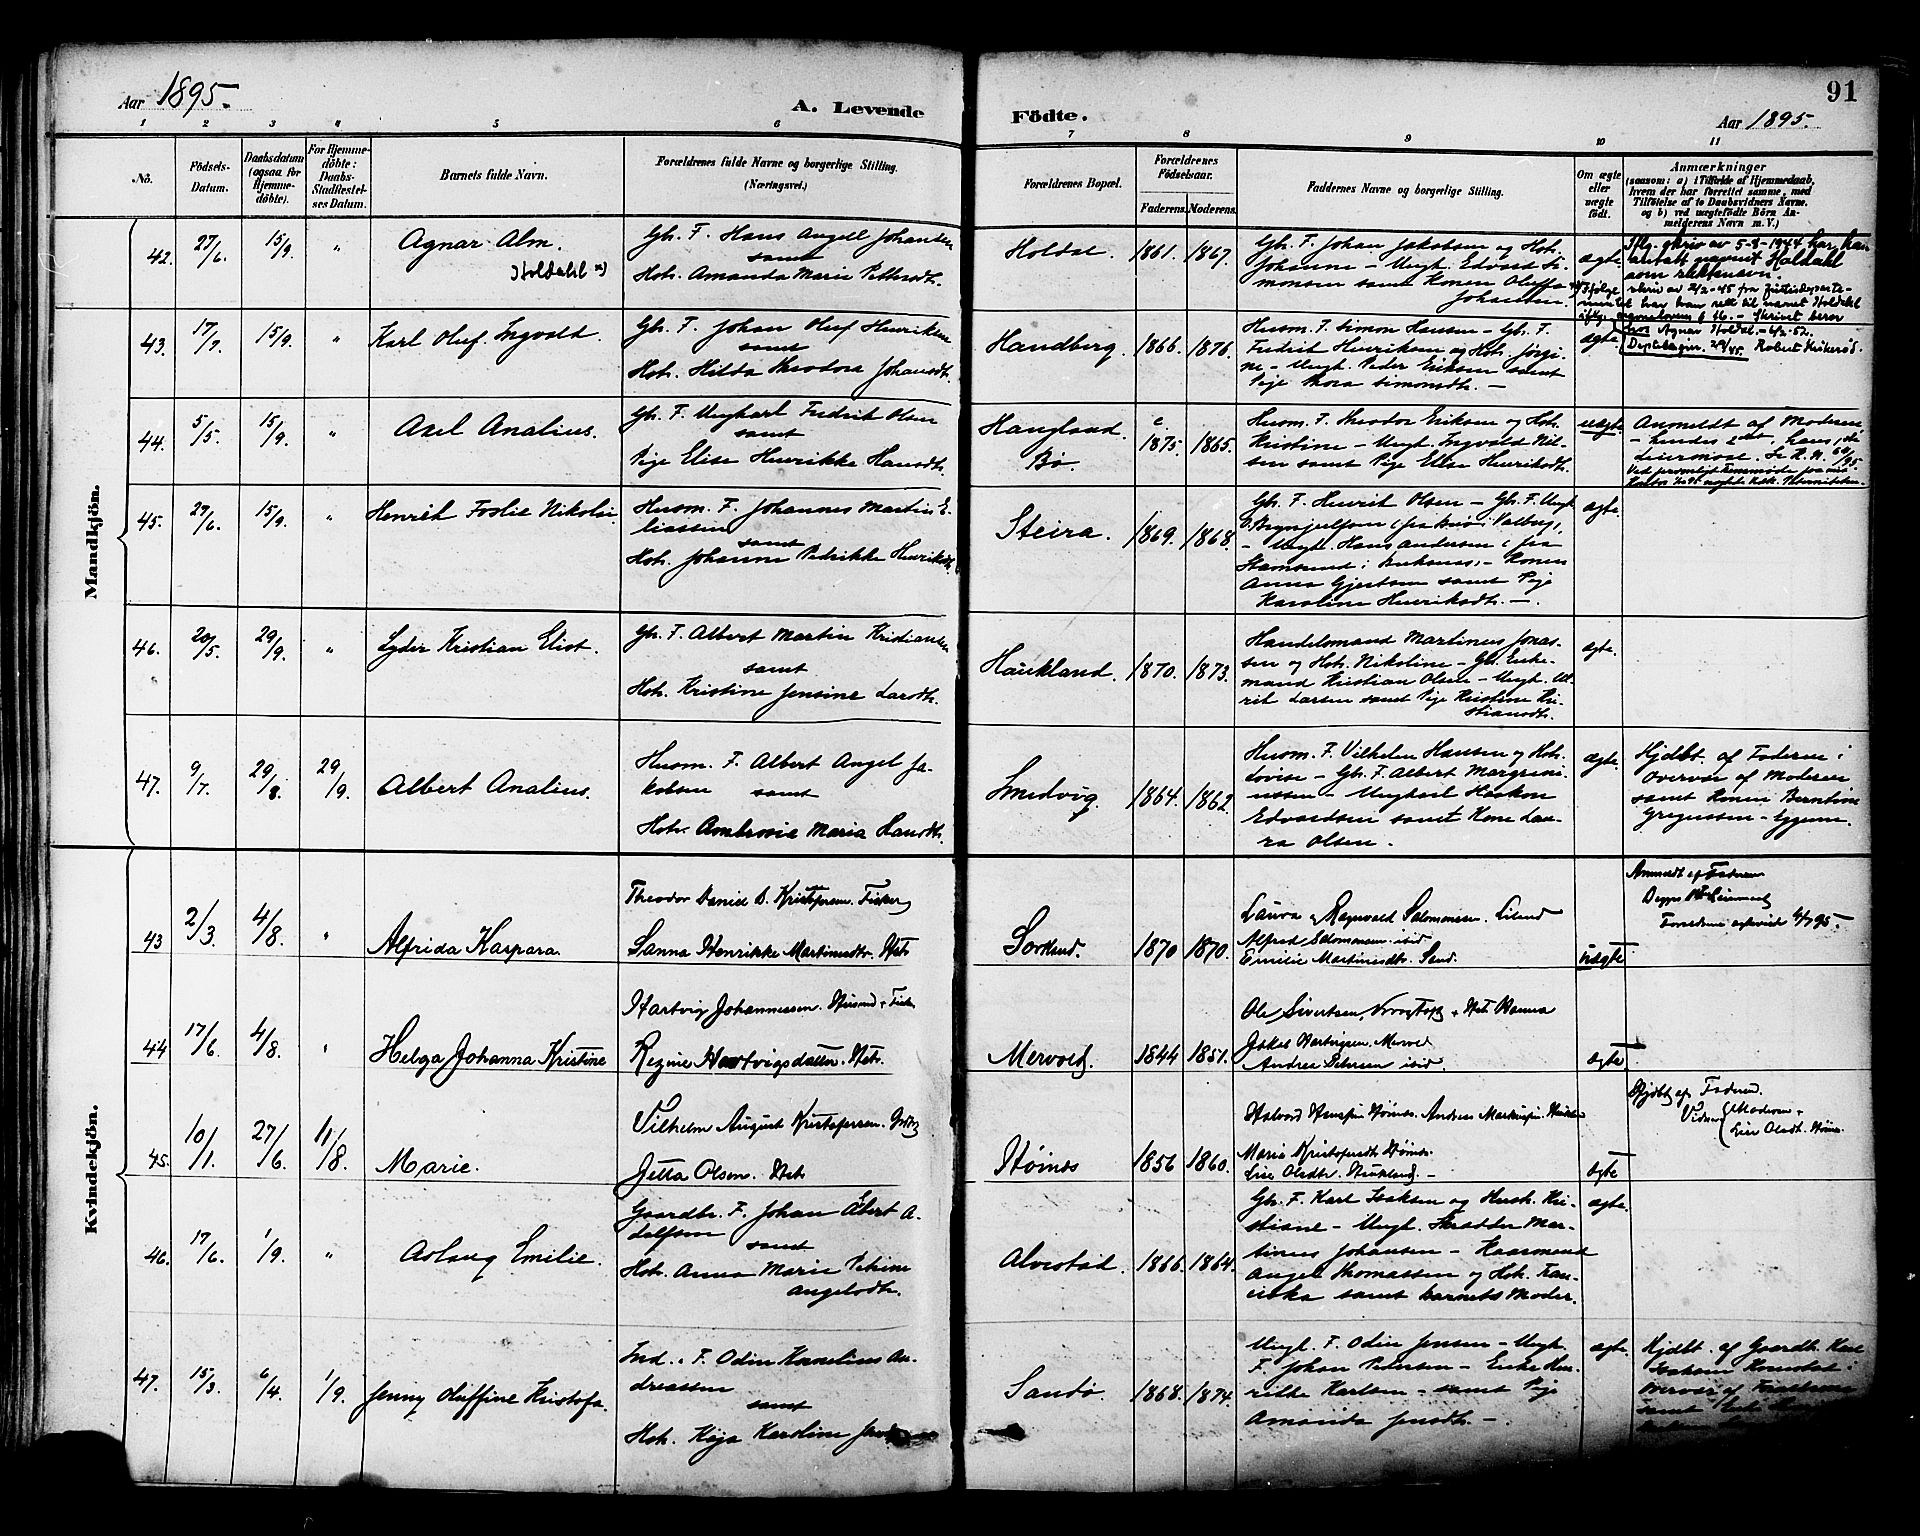 Aar 1895.
A. Levende
Födte.
Aar 1895.
91
1 2 3 4 5 6 7 8 9 10 11
No.
Födsels-
Datum.
Daabsdatum
(ogsaa for
Hjemme-
döbte).
For Hjemme-
döbte:
Daabs-
Stadfæstel-
ses Datum.
Barnets fulde Navn.
Forældrenes fulde Navne og borgerlige Stilling.
(Næringsvei.)
Forældrenes Bopæl.
Forældrenes
Födselsaar.
Faderens. Moderens.
Faddernes Navne og borgerlige Stilling.
Om ægte
eller
uægte
födt.
Anmærkninger
(saasom: a) i Tilfælde af Hjemmedaab,
hvem der har forrettet samme, med
Tilföielse af to Daabsvidners Navne.
og b) ved uægtefödte Börn An-
melderens Navn m. V.)
Mandkjön.
42. 27/6. 15/9. "
Agnar Alm.
Holdahl x)
Gbr. F. Hans Angell Johansen
samt
Hstr. Amanda Marie Pettersdtr.
Holdal 1861. 1867.
Gbr. F. Johan Jakobsen og Hstr.
Johanne – Ungk. Edvard Si-
monsen samt Konen Oluffa
Johansen.
ægte
Iflg. skriv av 5-8-1944 har han
antatt navnet Holdahl
som slektsnavn.
43. 17/7. 15/9. "
Karl Oluf Ingvald.
Gbr. F. Johan Oluf Henriksen
samt
Hstr. Hilda Theodora Johansdtr.
Handberg. 1866. 1876.
Husm. F. Simon Hansen – Gbr. F.
Fredrik Henriksen og Hstr. Jørgi-
ne – Ungk. Peder Eriksen samt
Pige Thora Simonsdtr. –
ægte.
hos Agnar Holdal. – 4/2-52.
Robert Krikerød.
44. 5/5. 15/9. "
Axel Analius.
Gbr. F. Ungkarl Fredrik Olsen
samt
Pige Elise Henrikke Hansdtr.
Haugland.
Bø
c.
1875. 1865.
Husm. F. Theodor Eriksen og Hstr.
Kristine – Ungk. Ingvald Nil-
sen samt Pige Elise Henriksdtr.
uægte
Anmeldt af Moderen
– hendes 2det, hans 1ste
Leiermaal. Se K. N. 60/95
45. 27/6. 15/9. "
Henrik Foslie Nikolai.
Husm. F. Johannes Martin E-
liassen
samt
Hstr. Johanne Pedrikke Henriksdtr.
Steira. 1869. 1868.
Gbr. F. Henrik Olsen – Gbr. F. Ungk
O. Brynjulfsen (fra Buø) Valberg,
– Ungk. Hans Andersen (fra
Stamsund i Buksnes, – Konen
Anna Gjertsen samt Pige
Karoline Henriksdtr. –.
ægte.
46. 20/5. 29/9. "
Lyder Kristian Eliot.
Gbr. F. Albert Martin Kristiansen
samt
Hstr. Kristine Jensine Larsdtr.
Haukland. 1870. 1873.
Handelsmand Martinus Jonas-
sen og Hstr. Nikoline – Gbr. Enke-
mand Kristian Olsen – Ungk. Ul-
rik Larsen samt Pige Kristine Kri-
stiansdtr.
ægte.
47. 9/7. 29/8. 29/9.
Albert Analius.
Husm. F. Albert Angel Ja-
kobsen samt
Hstr. Ambrosia Maria Hansdtr.
Smedvig. 1864. 1862.
Husm. F. Vilhelm Hansen og Hstr.
Lovise – Gbr. F. Albert Margreni-
ussen – Ungkarl Haakon
Edvardsen samt Kone Lau-
ra Olsen.
ægte.
Hjdbt. af Faderen i
Overvær af Moderen
samt Konen Berntine
Gregussen – Eggum.
Kvindekjön.
43 2/3. 4/8. "
Alfrida Kaspara.
Theodor Daniel B. Kristofersen. Fisker
Sanna Henrikke Martinusdtr. Hstr
Sortland. 1870 1870.
Laura og Ragnvald Salomonsen. Eiland
Alfred Salomonsen. ibid
Emilie Martinusdtr. Sand.
uægte
Anmeldt af Faderen
Begges 1ste Leiermaal
44 17/6. 4/8. "
Helga Johanna Kristine
Hartvig Johannessen. Husmd + Fisk
Regine Hartvigsdatter. Hstr.
Mervold. 1844 1851.
Ole Sivertsen, Vrogtop + Hstr Hanna
Jakob Hartvigsen. Mervold
Andrea Petersen ibid.
ægte
45. 10/1. 27/6. 11/8.
Marie.
Vilhelm August Kristofersen. Indr
Jetta Olsen. Hstr
Høines 1856 1860.
Halvard Hansen Høines. Andreas Martinsen.
Marie Kristofersdtr Høines.
Lise Olsdtr. Haukland –
ægte
Hjdbt af Faderen.
Vidner Moderen +
Lise Olsdtr. Høines
46. 17/6. 1/9. "
Aslaug Emilie.
Gaardbr. F. Johan Ebert A-
dolfsen
samt
Hstr. Anna Marie Petrine
Angelsdtr.
Alvestad. 1866. 1864.
Gbr. F. Karl Isaksen og Hustr. Kri-
stiane – Ungk. Skrædder Mar-
tinus Johansen – Kaarmand
Angel Thomassen og Hstr. Fran-
ciska samt Barnets Moder.
ægte.
47. 15/3. 6/4. 1/9.
Jenny Oluffine Kristofa.
Ind. F. Odin Kornelius An-
dreassen
samt
Hstr. Kaja Karoline
Sandø. 1868. 1874.
Ungk. F. Odin Jensen – Ungk.
F. Johan Pedersen – Enke Hen-
rikke Karlsen – samt Pige
Amanda Jensdtr. –
ægte.
Hjdbt. af Gaardbr.
Overvær af Forældrene
samt